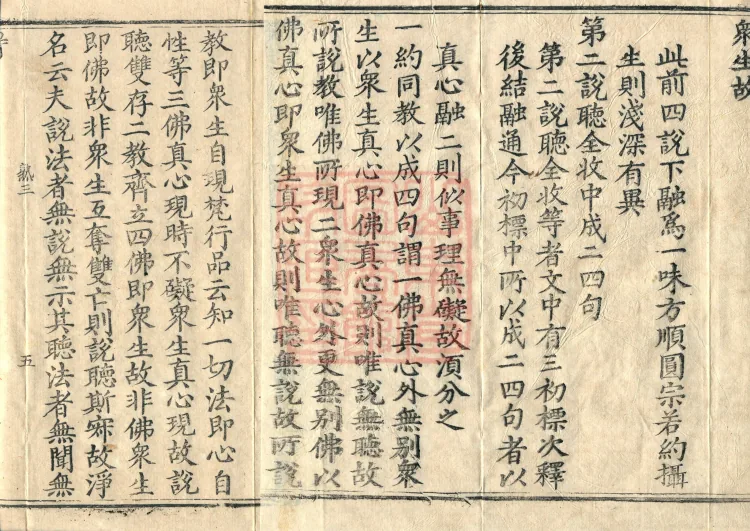 衆生故
此前四說下融爲一味方順圓宗若約攝
生則淺深有異
第二說聽全收中成二四句
第二說聽全收等者文中有三初標次釋
後結融通今初標中所以成二四句者以
真心融二則似事理無礙故須分之
一約同教以成四句謂一佛真心外無別衆
生以衆生真心即佛真心故則唯說無聽故
所說教唯佛所現二衆生心外更無別佛以
佛真心即衆生真心故則唯聽無說故所說
教即衆生自現梵行品云知一切法即心自
性等三佛真心現時不礙衆生真心現故說
聽雙存二教齊立四佛即衆生故非佛衆生
即佛故非衆生互奪雙亡則說聽斯寂故淨
名云夫說法者無說無示其聽法者無聞無
孰三
五